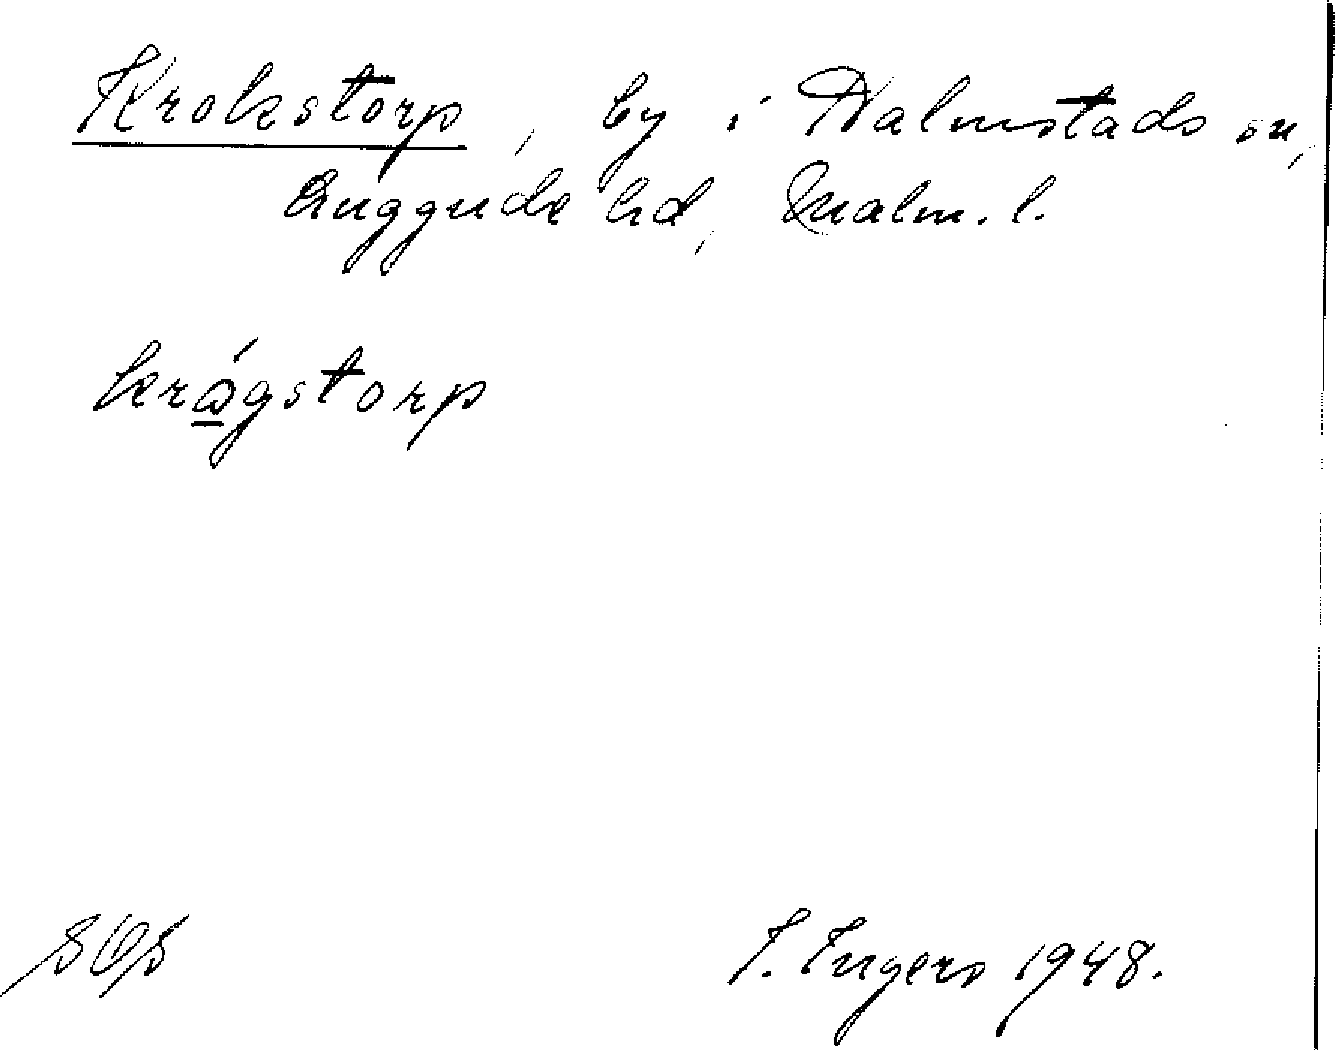 Krokstorp, by i Halmstads sn,
Luggude hd, Malm. l.
krǫ́gstorp
I. Ingers 1948.